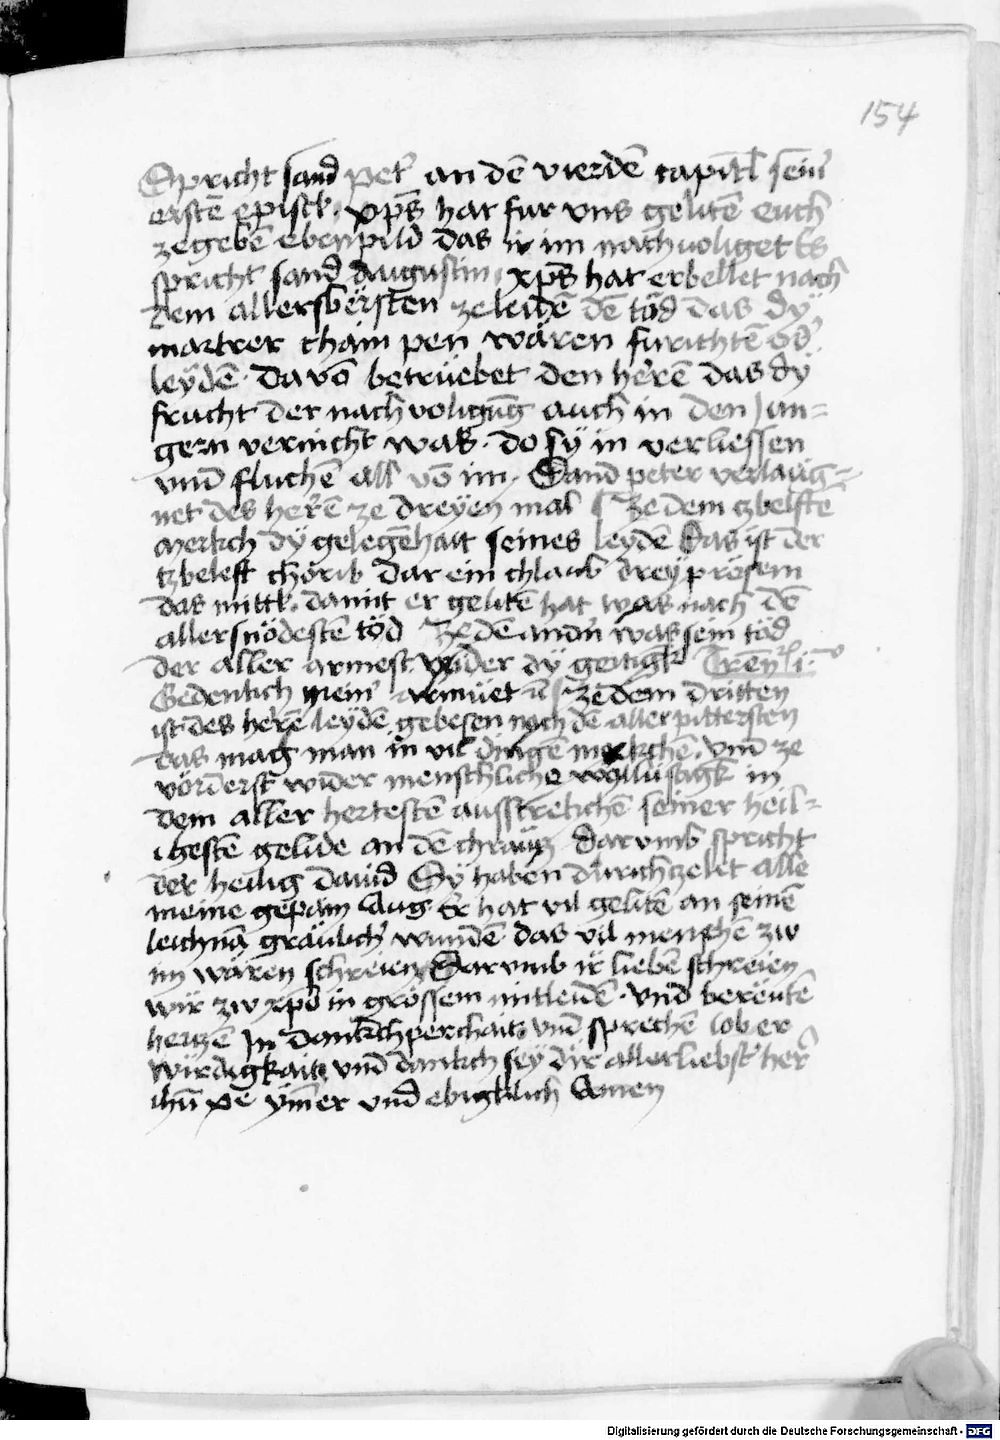 154
Spricht sand pet' an dē vierdē capitl sein'
erstē epistl. xp̄s hat fur vns gelitē euch
zegebē ebenpild das ir im nachuoliget Es
spricht sand Augustin. xp̄s hat erbellet nach
dem allersbërstēn zeleidē dē töd das dy
martrer cham pen wären furichtē od'
leÿdē. Da vō betrüebet den herrē das dÿ
frucht der nach voligūg auch in den Jun=
gern vernicht was. do sÿ in verliessen
vnd fluchē all vō im. Sand peter verlaug=
net des herrē ze dreÿen mal Ze dem tzbelftē
merkch dÿ gelegēhait seines leydē Das ist der
tzbeleft chörib dar ein chlaub dreÿ prösem
das mittl. damit er gelitē hat was nach dē
allersnödestē töd Ze dē andn̄ was sein töd
der aller armest. wider dÿ geitigkt Tren̄ i:º
Gedenkch mein' armüet Ze dem dritten
ist des herrē leydē gebesen nach dē aller pitterstēn
das mag man in vil dingen merkchē. vnd ze
vörderst wider menschliche wollustigk in
dem aller hertestē ausstrekchē seiner heil=
igestē gelide an dē chräutz darumb spricht
der heilig dauid Sÿ haben durichtzelet alle
meine gepain Aug. Er hat vil gelitē an seinē
leichnā gräulich' wundē das vil menschē zw
im wären schreien Darumb ir liebē schreien
wir zw xpō in grössem mitleidē. vnd berëutē
hertzē In dankchperchait vnd sprechē lob er
wirdigkait vnd dankch seÿ dir allerliebst' her'
ihū xe ÿmer vnd ebigklich Amen
Digitalisierung gefördert durch die Deutsche Forschungsgemeinschaft - DFG